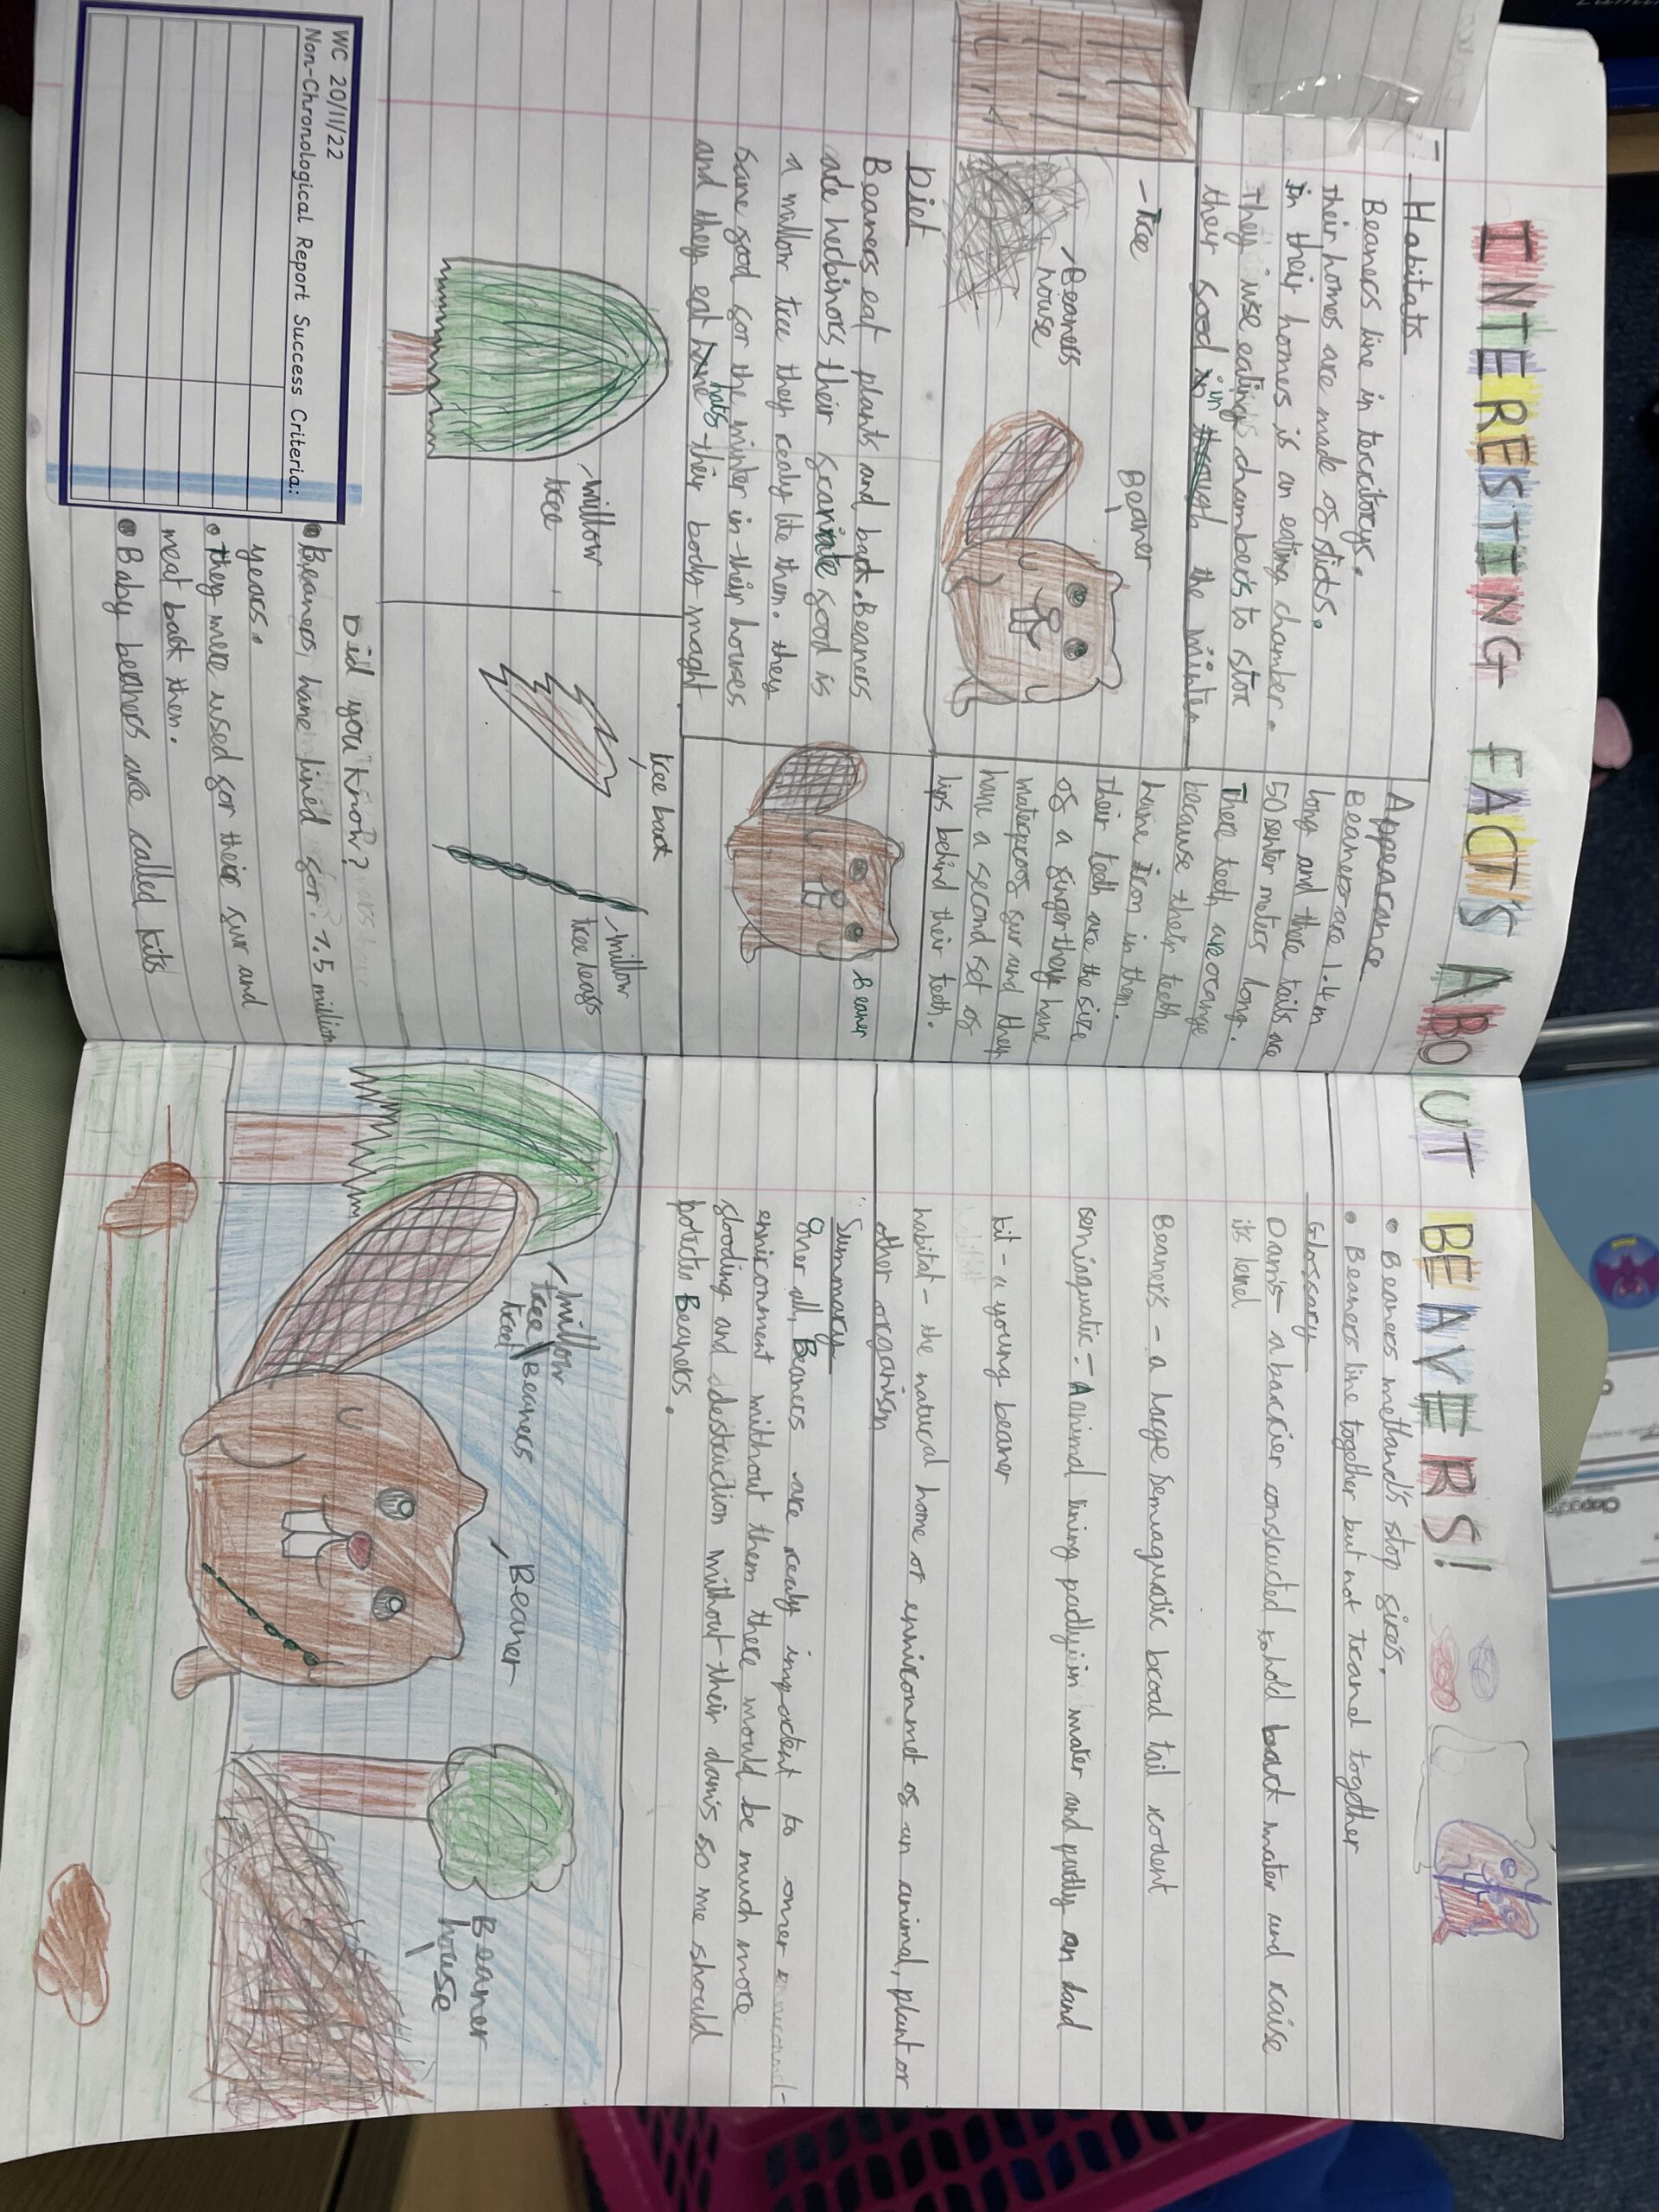 INTERESTING FACTS ABOUT BEAVERS!
Habitats
Beavers live in territorys.
Their homes are made of sticks.
In their homes is an eating chamber.
They use eating chambers to stor
their food in through the winter
in
-Tree
Beavers
house
Beaver
Appearance
Beavers are 1.4m
long and there tails are
50 senter meters long.
There teeth are orange
because their teeth
have iron in them.
Their teeth are the size
of a finger they have
waterproof fur and they
have a second set of
lips behind their teeth.
Diet
Beavers eat plants and bark. Beavers
are herbivors their favorite food is
a willow tree they realy like them. they
save food for the winter in their houses
and they eat hats their body weight
willow
tree
Beaver
tree bark
willow
tree leafs
WC 20/11/22
Non-Chronological Report Success Criteria:
Did you know?
Beavers, have lived for 7.5 million
years.
they were used for their fur and
meat back then.
Baby beavers are called kits
Beavers wetland's stop fires.
Beavers live together but not travel together
Glossary
Dam's - a barrier constructed to hold back water and raise
its level
Beaver's - a large semiaquatic broad tail rodent
semiquatic - A animal living partly in water and partly on land
kit - a young beaver
habitat - the natural home or enviconmet of an animal, plant or
other organism
Summary
Over all, Beavers are realy important to over
enviroment without them there would be much more
flooding and destruction without their dam's so we should
potects Beavers.
willow
tree
Beavers
tree
Beaver
Beaver
house